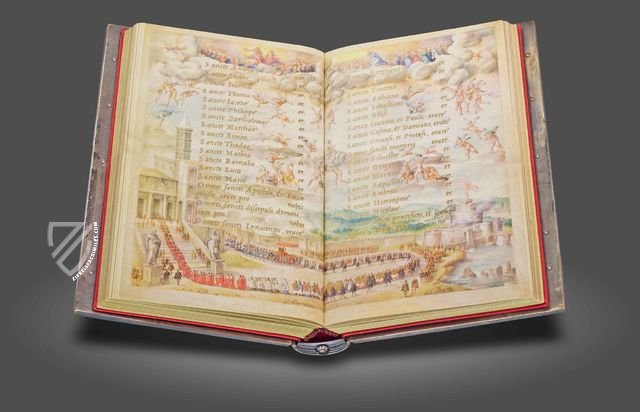 Sancte Andrea or.
Sancte
Sancte Ioannes or.
Sancte Thoma or.
Sancte Iacobe or.
Sancte Philippe or.
Sancte Bartholomee or.
Sancte Matthaee or.
Sancte Simon or.
Sancte Thadae or.
Sancte Mathia or.
Sancte Barnaba or.
Sancte Luca or.
Sancte Marce or.
Omnes sancti Apostoli, & Euan
orate pro nobis
Omnes sancti discipuli domini,
orate pro nobis
Omnes sancti Innocentes, orate
Sancte Stephane or.
Sancte or.
Sancte Vincenti or.
Sancte Fabiane or.
Sancte Sebastiane or.
Sancte Blasi or.
Sancti Ioannes, et Paule, orate
Sancti Cosma, & Damiane, orate
Sancti Geruasi, et Protasi, orate
Omnes sancti martyres orate
Sancte Siluester or.
Sancte Gregori or.
Sancte Martine or.
Sancte Augustine or.
Sancte Ambrosi or.
Sancte Hieronyme or.
Sancte Nicolae or.
Omnes sancti pontifices, et
ZIEREIS FACSIMILES.COM